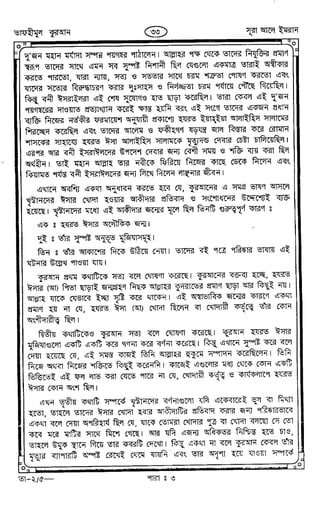 তাফহীমুল কুরআন
৩৩
সূরা আলে ইমরান
দু'জন মহান মর্যাদা সম্পন্ন পয়গম্বর পাঠালেন। আল্লাহর পক্ষ থেকে তাদের নিযুক্তির প্রমাণ
স্বরূপ তাদের সাথে এমন সব সুস্পষ্ট নিশানী ছিল যেগুলো একমাত্র তারাই অস্বীকার
করতে পারতো, যারা ন্যায়, সত্য ও সততার সাথে চরম শত্রুতা পোষণ করতো এবং
যাদের সত্যের বিরুদ্ধাচরণ করার দুঃসাহস ও নির্লজ্জতা চরম পর্যায়ে পৌঁছে গিয়েছিল।
কিন্তু বনী ইসরাঈলরা এই শেষ সুযোগও হাত ছাড়া করেছিল। তারা কেবল এই দু'জন
পয়গম্বরের দাওয়াত প্রত্যাখ্যান করেই ক্ষান্ত হয়নি বরং এই সাথে তাদের একজন প্রধান
ব্যক্তি নিজের নর্তকীর ফরমায়েশ অনুযায়ী প্রকাশ্যে হযরত ইয়াহ্‌ইয়া আলাইহিস সালামের
শিরচ্ছেদ করেছিল এবং তাদের আলেম ও ফকীহগণ ষড়যন্ত্র জাল বিস্তার করে রোমান
শাসকের সাহায্যে হযরত ঈসা আলাইহিস সালামকে মৃত্যুদণ্ড দেবার চেষ্টা চালিয়েছিল।
এরপর আর বনী ইসরাঈলদের উপদেশ দেবার জন্য বেশী সময় ও শক্তি ব্যয় করা ছিল
অর্থহীন। তাই মহান আল্লাহ তার নবীকে ফিরিয়ে নিজের কাছে ডেকে নিলেন এবং
কিয়ামত পর্যন্ত বনী ইসরাঈলদের জন্য লিখে দিলেন লাঞ্ছনার জীবন।
এখানে অবশ্যি একথা অনুধাবন করতে হবে যে, কুরআনের এ সমগ্র ভাষণ আসলে
খৃস্টানদের ঈসার খোদা হওয়ার আকীদার প্রতিবাদ ও সংশোধনের উদ্দেশ্যেই ব্যক্ত
হয়েছে। খৃস্টানদের মধ্যে এই আকীদার জন্মের মূলে ছিল তিনটি গুরুত্বপূর্ণ কারণ ঃ
এক ঃ হযরত ঈসার অলৌকিক জন্ম।
দুই ঃ তাঁর সুস্পষ্ট অনুভূত মুজিযাসমূহ।
তিন ঃ তাঁর আকাশের দিকে উঠিয়ে নেয়া। তাদের বই পত্রে পরিষ্কার ভাষায় এই
ঘটনার উল্লেখ পাওয়া যায়।
কুরআন প্রথম কথাটিকে সত্য বলে ঘোষণা করেছে। কুরআনের বক্তব্য হচ্ছে, হযরত
ঈসার (আ) পিতা ছাড়াই জন্মগ্রহণ নিছক আল্লাহর কুদরাতের প্রমাণ ছাড়া আর কিছুই নয়।
আল্লাহ যাকে যেভাবে ইচ্ছা সৃষ্টি করে থাকেন। এই অস্বাভাবিক জন্মের কারণে একথা
প্রমাণ হয় না যে, হযরত ঈসা (আ) খোদা ছিলেন বা খোদায়ী কর্তৃত্বে তাঁর কোন
অংশীদারীত্ব ছিল।
দ্বিতীয় কথাটিকেও কুরআন সত্য বলে ঘোষণা করেছে। কুরআন হযরত ঈসার
মুজিযাগুলো একটি একটি করে গণনা করে বর্ণনা করেছে। কিন্তু এখানে সুস্পষ্ট করে বলে
দেয়া হয়েছে যে, এই সমস্ত কাজই তিনি আল্লাহর হুকুমে সম্পাদন করেছিলেন। তিনি
নিজে অথবা নিজের শক্তিতে কিছুই করেননি। কাজেই এগুলোর মধ্য থেকে কোন একটি
ভিত্তিতেই এই ফল লাভ করা যেতে পারে না যে, খোদায়ী কর্তৃত্ব ও কার্যকলাপে হযরত
ঈসার কোন অংশ ছিল।
এখন তৃতীয় কথাটি সম্পর্কে খৃস্টানদের বর্ণনাগুলো যদি একেবারেই ভুল বা মিথ্যা
হতো, তাহলে তাদের ঈসার খোদা হবার আকীদাটির প্রতিবাদ করার জন্য পরিষ্কারভাবে
একথা বলে দেয়া অপরিহার্য ছিল যে, যাকে তোমরা খোদার পুত্র বা খোদা বলছো সে তো
কবে মরে মাটির সাথে মিশে গেছে। আর যদি এজন্য অধিকতর নিশ্চিন্ত হতে চাও,
তাহলে উমুক স্থানে গিয়ে তার কবরটি দেখো। কিন্তু একথা না বলে কুরআন কেবল তাঁর
মৃত্যুর ব্যাপারটি অস্পষ্ট রেখেই থেমে যায়নি এবং তার অদৃশ্য হয়ে যাওয়া সম্পর্কে
তা-২/৫—
পারা ঃ ৩